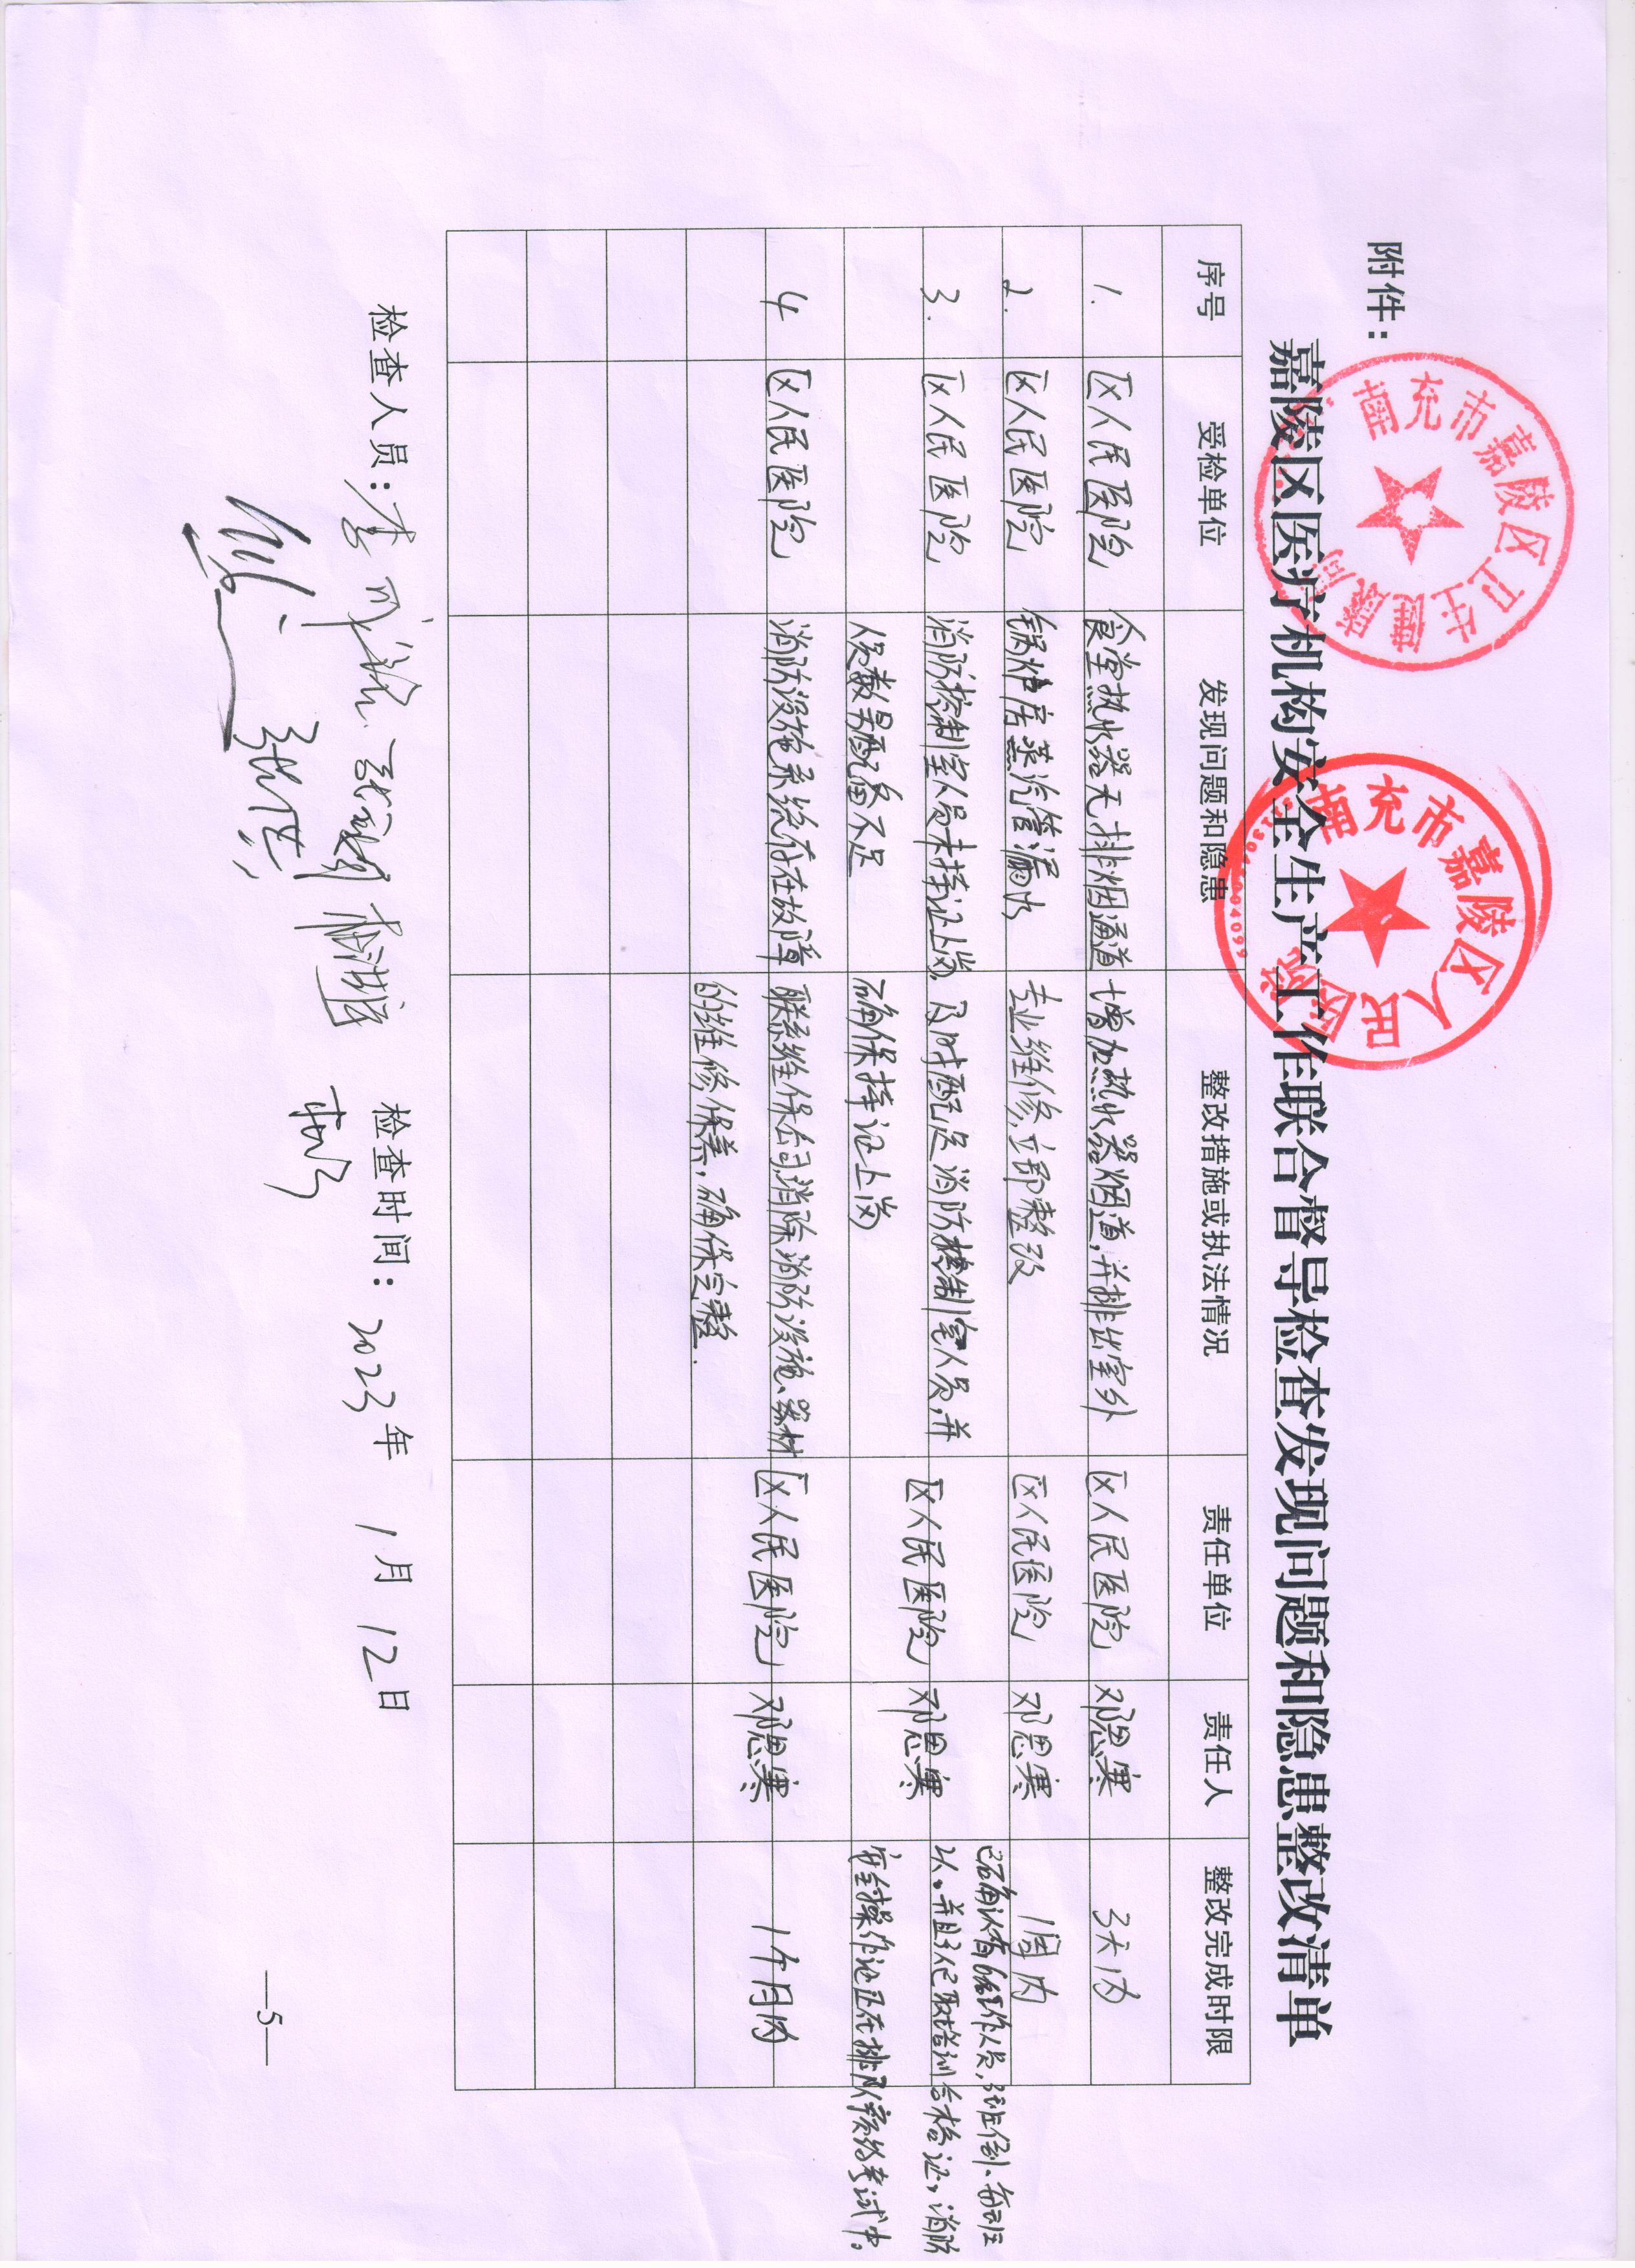 附件：
嘉陵区医疗机构安全生产工作联合督导检查发现问题和隐患整改清单
南充市嘉陵区卫生健康局
南充市嘉陵区人民医院
序号 受检单位 发现问题和隐患 整改措施或执法情况 责任单位 责任人 整改完成时限
1. 区人民医院 食堂热水器无排烟通道 增加热水器烟道，并排出室外 区人民医院 邓思寒 3天内
2. 区人民医院 锅炉房蒸汽管漏水 专业维修，立即整改 区人民医院 邓思寒 1周内
3. 区人民医院 消防控制室人员未持证上岗， 及时配足消防控制室人员，并 区人民医院 邓思寒 已确认有6名工作人员，3班倒、每班
2人。并且3人已取培训合格证，消防
人员数量配备不足 确保持证上岗 安全操作证正在排队预约考试中。
4 区人民医院 消防设施系统存在故障 联系维保公司消除消防设施、器材 区人民医院 邓思寒 1个月内
的维修保养，确保完整.
检查人员： 检查时间：2023年1月12日
—5—